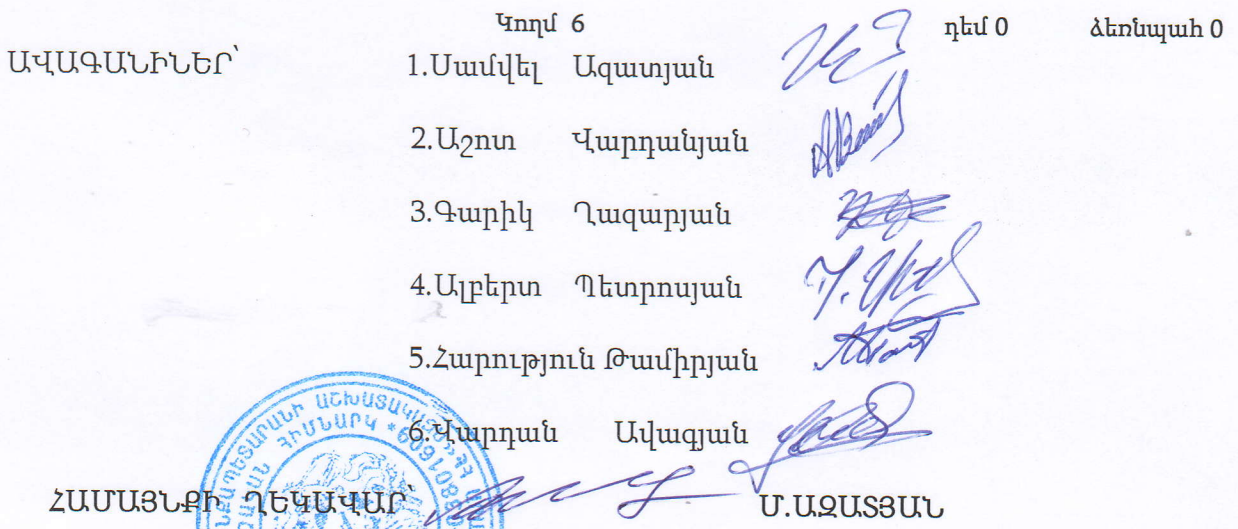 Կողմ 6 դեմ 0 ձեռնպահ 0
ԱՎԱԳԱՆԻՆԵՐ՝ 1.Սամվել Ազատյան
2.Աշոտ Վարդանյան
3.Գարիկ Ղազարյան
4.Ալբերտ Պետրոսյան
5.Հարություն Թամիրյան
6.Վարդան Ավագյան
ՀԱՄԱՅՆՔԻ ՂԵԿԱՎԱՐ՝ Մ.ԱԶԱՏՅԱՆ